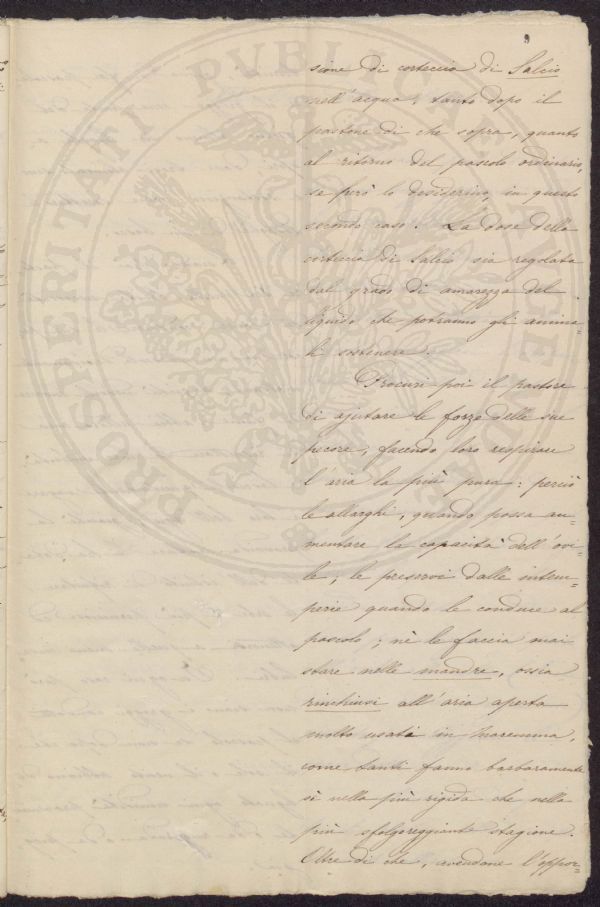 9
sione di corteccia di Salcio
nell'acqua, tanto dopo il
pastone di che sopra, quanto
al ritorno del pascolo ordinario,
se però lo desiderino, in questo
secondo caso. La dose della
corteccia di Salcio sia regolata
dal grado di amarezza del
liquido che potranno gli anima=
li sostenere.
Procuri poi il pastore
di ajutare le forze delle sue
pecore, facendo loro respirare
l'aria la più pura: perciò
le allarghi, quando possa au=
mentare la capacità dell'ovi=
le; le preservi dalle intem=
perie quando le conduce al
pascolo; nè le faccia mai
stare nelle mandre, ossia
rinchiusi all'aria aperta
molto usati in Maremma,
come tanti fanno barbaramente
sì nella più rigida che nella
più sfolgoreggiante stagione.
Oltre di che, avendone l'oppor=
PROSPERITATI PVBLICAE AVGENDAE